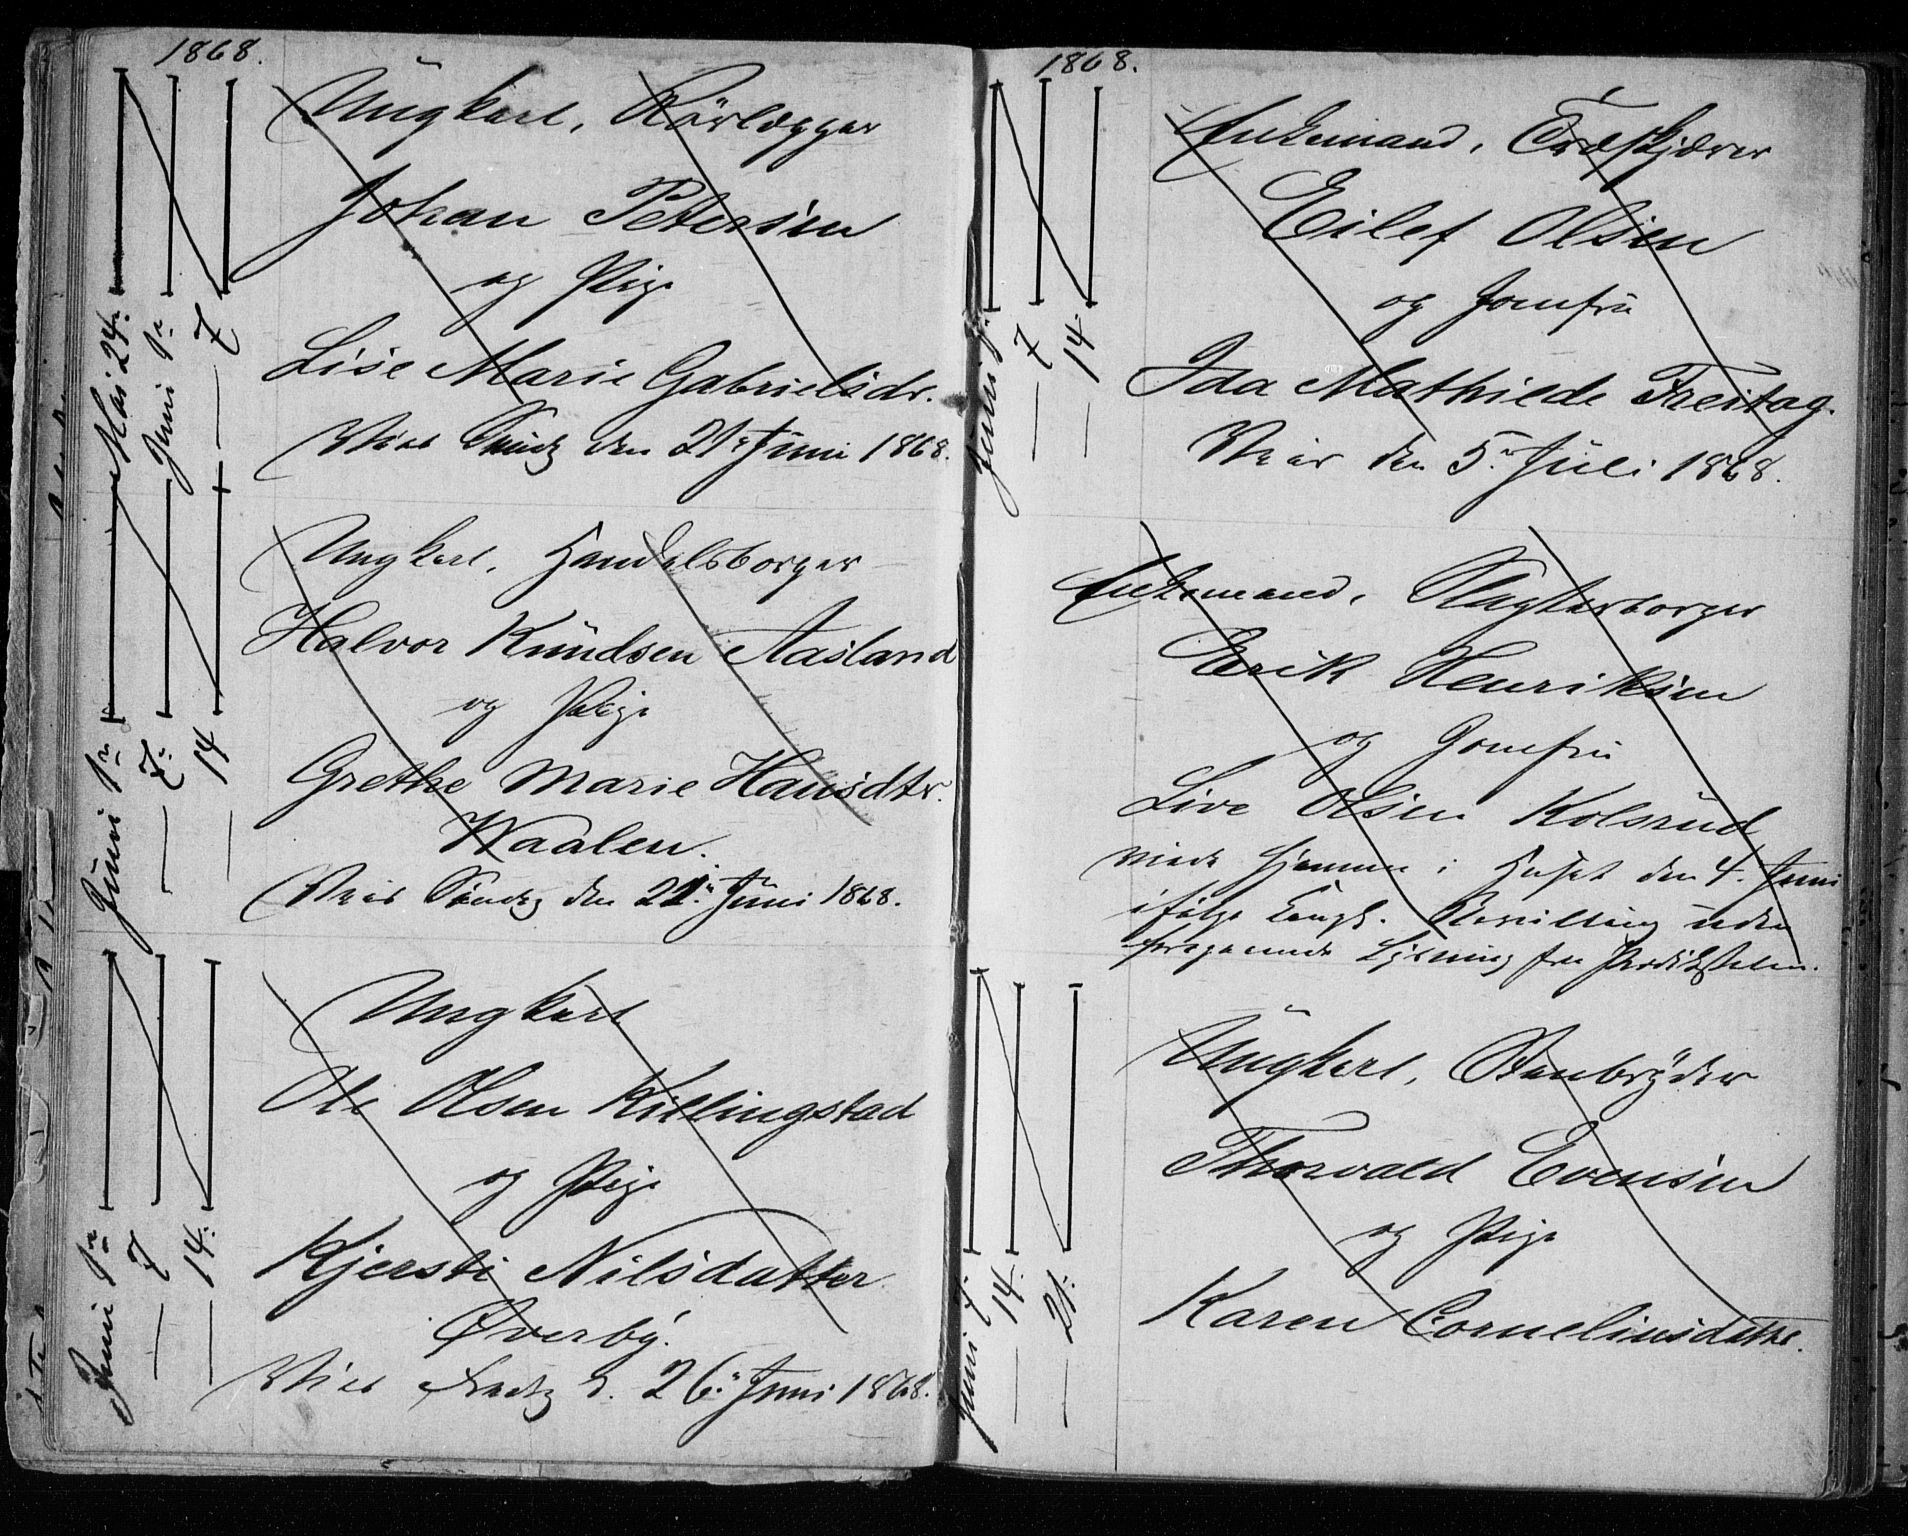 1868.
Mai 24.
Juni 1ste
— 7
Ungkarl, Rörlægger
Johan Petersen
og Pige
Lise Marie Gabrielsdr.
Viet Søndg den 21e Juni 1868.
Juni 1ste
— 7.
— 14
Ungkarl, Handelsborger
Halvor Knudsen Aasland
og Pige
Grethe Marie Hansdtr.
Waalen.
Viet Søndg den 21. Juni 1868.
Juni 1ste
— 7
— 14.
Ungkarl
Ole Olsen Killingstad
og Pige
Kjersti Nilsdatter
Øverby.
Viet Fredg d. 26. Juni 1868.
1868.
Juni 1ste
— 7
— 14.
Enkemand, Træskjærer
Eilef Olsen
og Jomfru
Ida Mathilde Freitag.
Viet den 5. Juli 1868.
Enkemand, Slagterborger
Erik Henriksen
og Jomfru
Live Olsen Kolsrud
viede hjemme i Huset den 4. Juni
ifølge kongl. Bevilling uden
foregaaende Lysning fra Prædikestolen.
Juni 7.
— 14.
— 21.
Ungkarl, Stenbryder
Thorvald Evensen
og Pige
Karen Corneliusdatter.